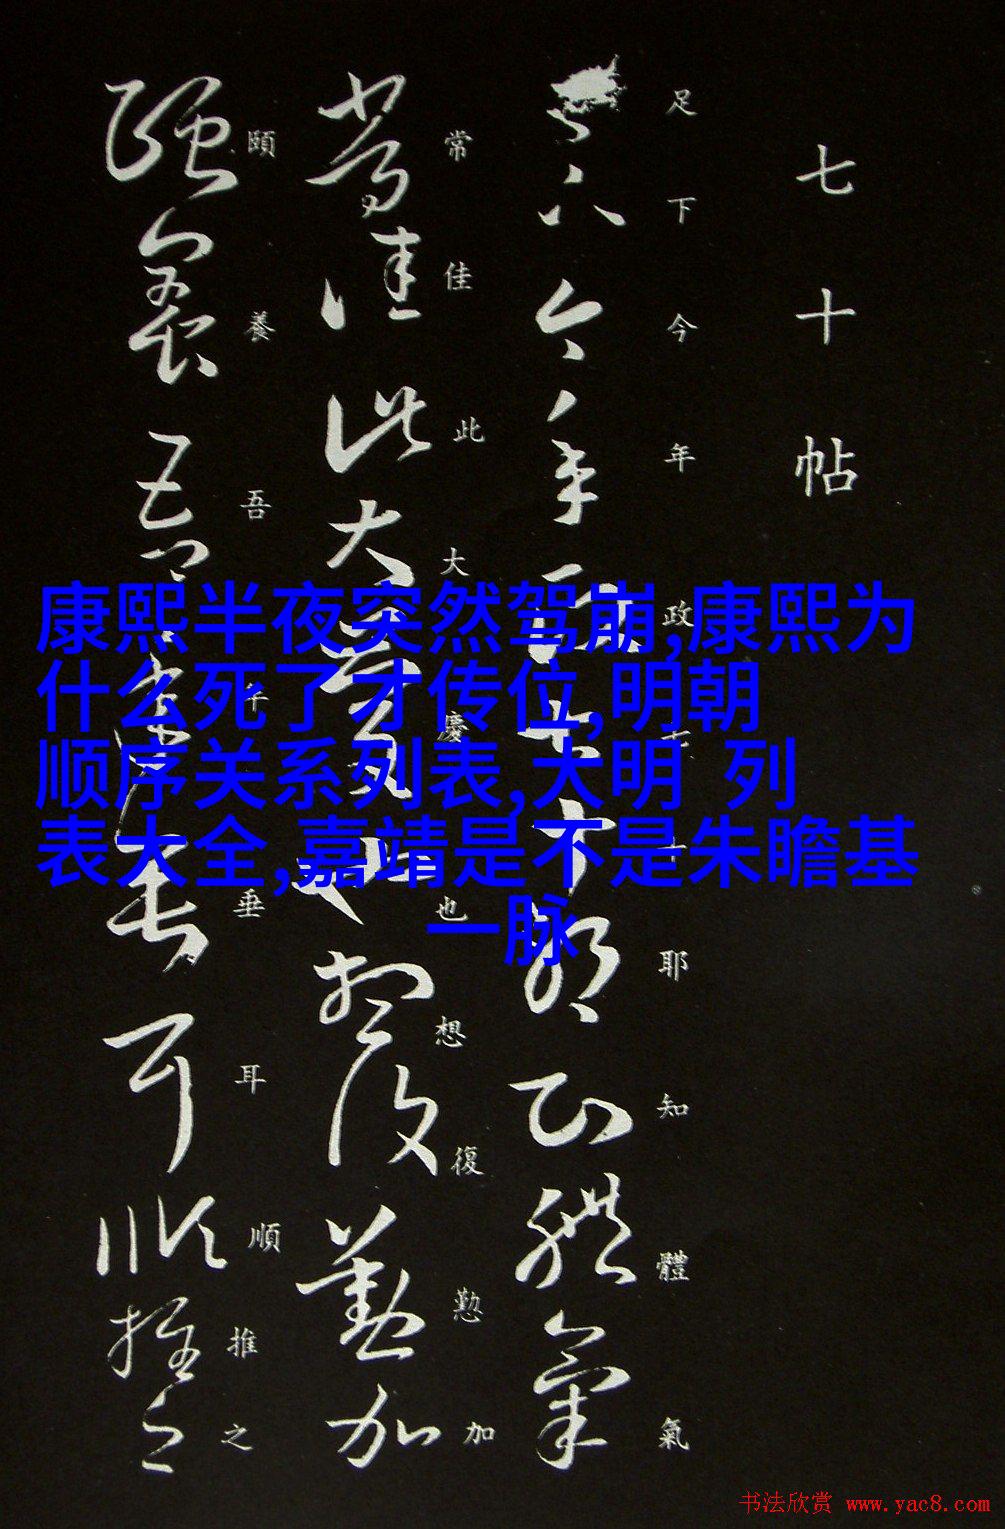 七十帖
足下今年政七十耶知體氣
常佳此大慶也想復懃加
頤養吾年垂耳順推之
康熙半夜突然驾崩,康熙为
什么死了才传位,明朝
顺序关系列表,大明 列
表大全,嘉靖是不是朱瞻基
一脉
书法欣赏 www.yac8.com